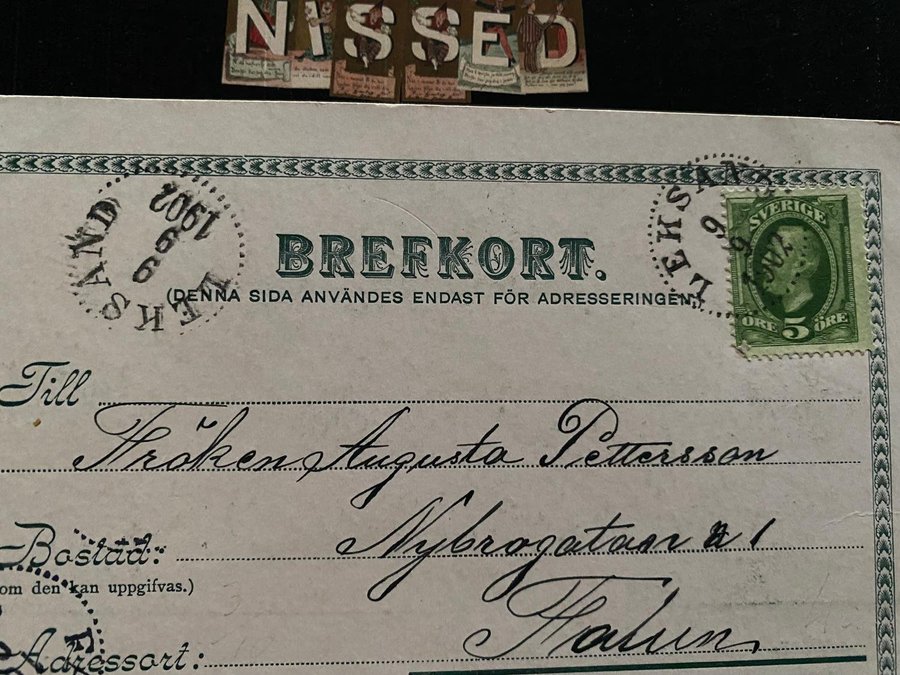 NISSED
BREFKORT.
(DENNA SIDA ANVÄNDES ENDAST FÖR ADRESSERINGEN)
LEKSAND
9 9
1902
LEKSAND
9 9
1902
SVERIGE
ÖRE 5 ÖRE
Till
Fröken Augusta Pettersson
Bostad: Nybrogatan 1
om den kan uppgifvas.)
Adressort: Falun